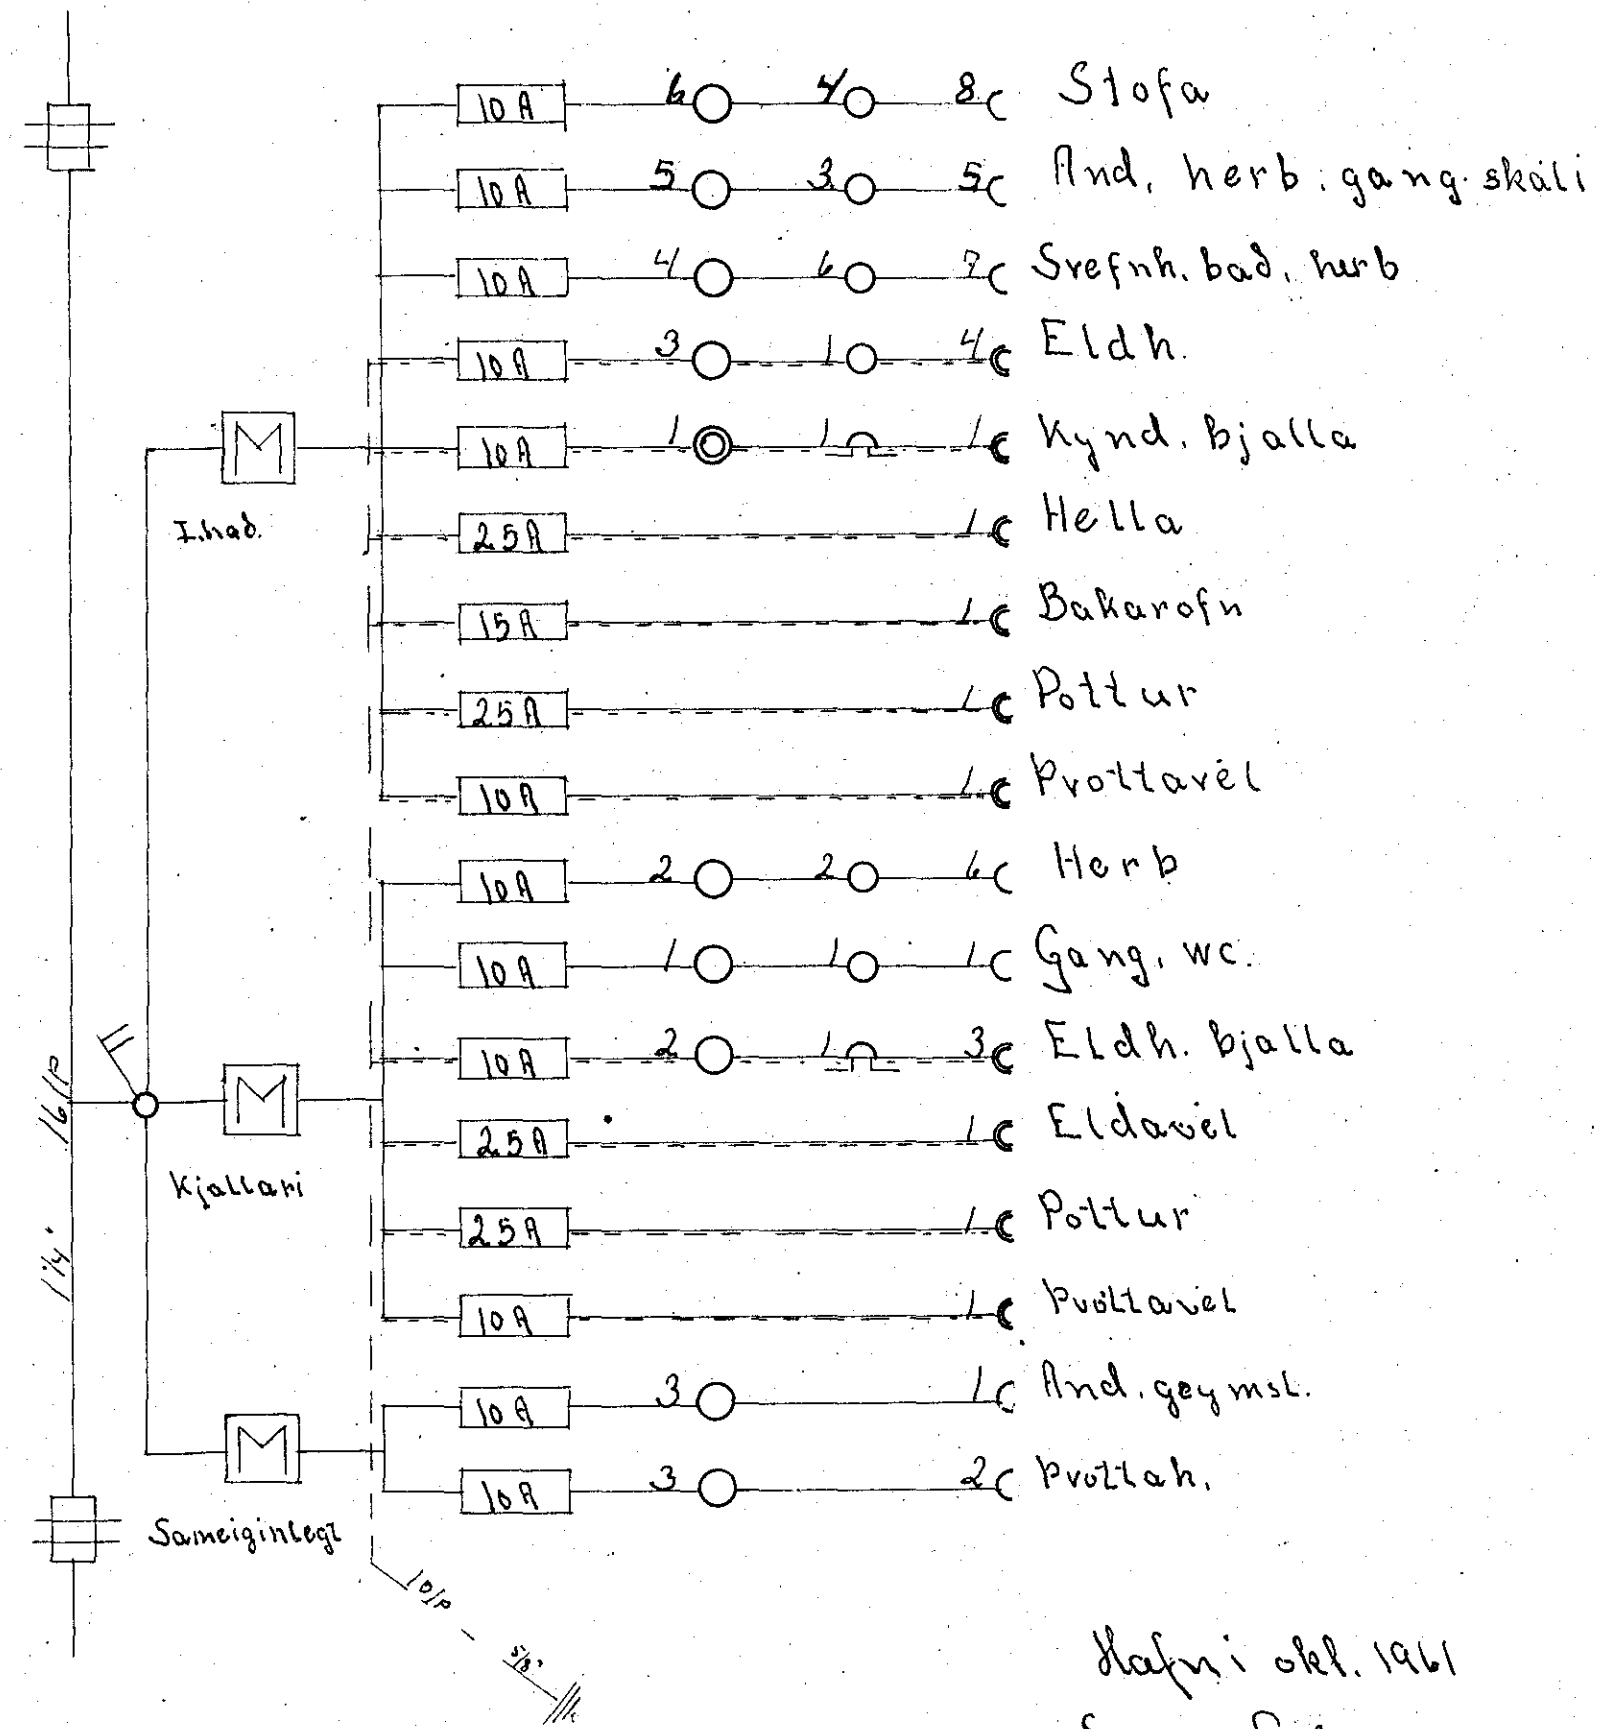 10 A 6 4 8 Stofa
10 A 5 3 5 And. herb. gang. skáli
10 A 4 6 7 Svefnh. bað. herb
10 A 3 1 4 Eldh.
10 A 1 1 1 Kynd. bjalla
I. hæð.
25 A 1 Hella
15 A 1 Bakarofn
25 A 1 Pottur
10 A 1 Þvottavél
10 A 2 2 6 Herb
10 A 1 1 1 Gang, wc.
10 A 2 1 3 Eldh. bjalla
16/P
25 A 1 Eldavél
Kjallari
25 A 1 Pottur
1 1/4"
10 A 1 Þvottavél
10 A 3 1 And. geymsl.
10 A 3 2 Þvottah.
Sameiginlegt
10/P
5/8"
Hafn. i okt. 1961